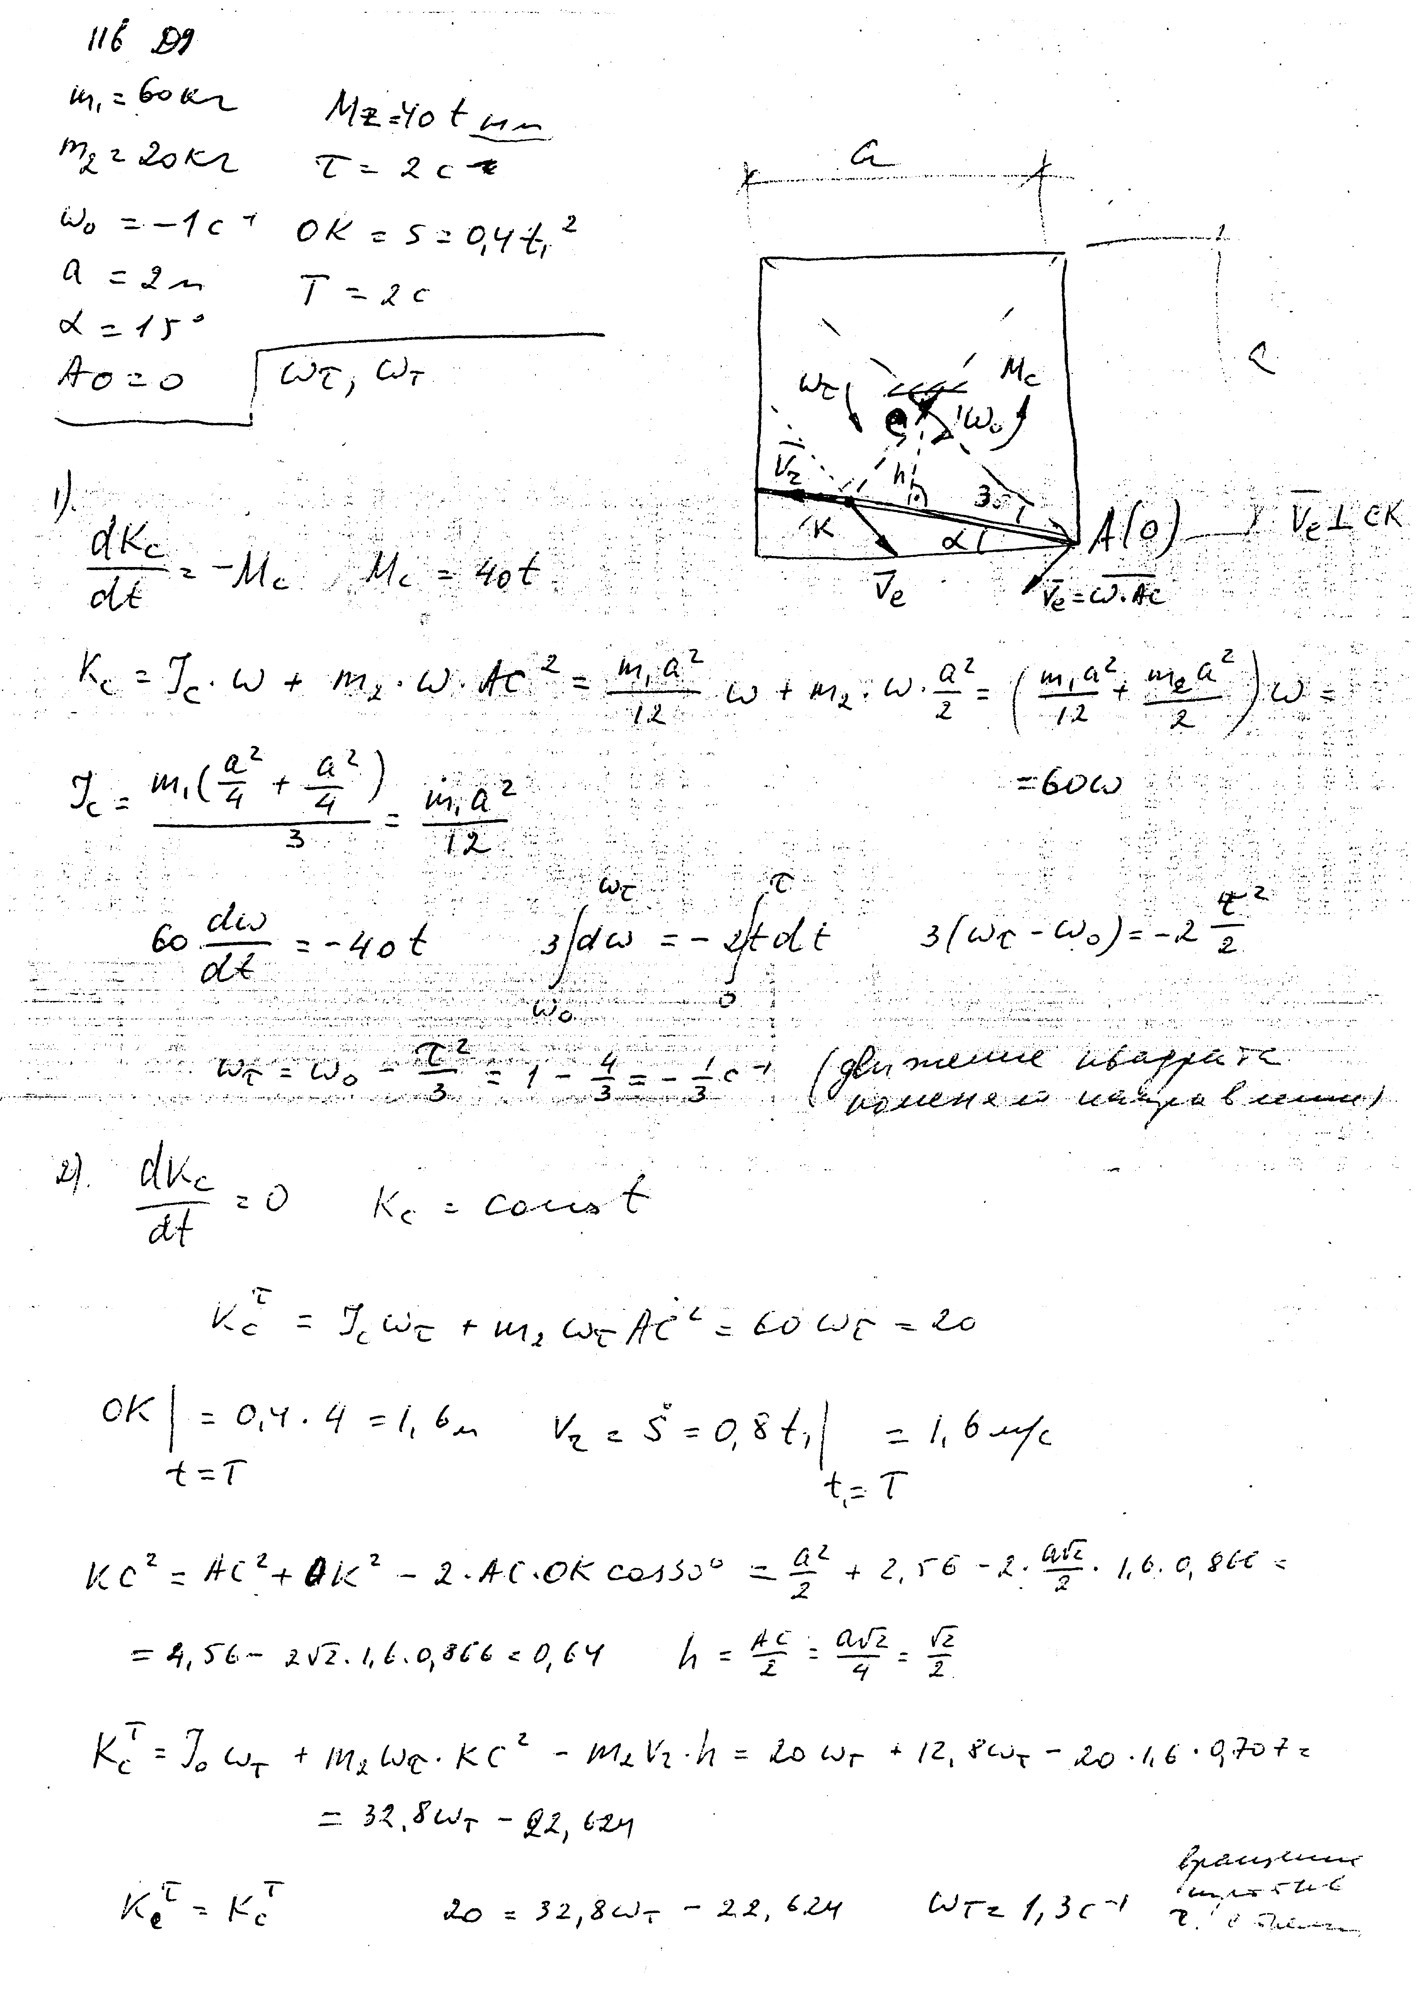 11б Д9
m₁ = 60 кг
Mz = 40 t нм
m₂ = 20 кг
τ = 2 с
ω₀ = -1 с⁻¹
OK = s = 0,4 t₁²
a = 2 м
T = 2 с
α = 15°
AO = 0
ω_τ, ω_T
a
a
ω_τ
M_C
ω₀
C
V̄_r
h
30°
K
α
A(O)
V̄e ⊥ CK
V̄e
V̄e = ω·AC
1).
dK_C/dt = -M_C , M_C = 40t
K_C = J_C·ω + m₂·ω·AC² = m₁a²/12 ω + m₂·ω·a²/2 = (m₁a²/12 + m₂a²/2)ω =
= 60ω
J_C = m₁(a²/4 + a²/4)/3 = m₁a²/12
60 dω/dt = -40t
3∫_{ω₀}^{ω_τ} dω = -2∫_0^τ t dt
3(ω_τ - ω₀) = -2 τ²/2
ω_τ = ω₀ - τ²/3 = 1 - 4/3 = -1/3 с⁻¹ (движение квадрата
поменяло направление)
2).
dK_C/dt = 0
K_C = const
K_C^τ = J_C ω_τ + m₂ ω_τ AC² = 60ω_τ = 20
OK|_{t=T} = 0,4·4 = 1,6 м
V_r = ṡ = 0,8t₁|_{t₁=T} = 1,6 м/с
KC² = AC² + OK² - 2·AC·OK cos30° = a²/2 + 2,56 - 2·a√2/2·1,6·0,866 =
= 4,56 - 2√2·1,6·0,866 = 0,64
h = AC/2 = a√2/4 = √2/2
K_C^T = J₀ω_T + m₂ω_τ·KC² - m₂V_r·h = 20ω_T + 12,8ω_T - 20·1,6·0,707 =
= 32,8ω_T - 22,624
K_C^τ = K_C^T
20 = 32,8ω_T - 22,624
ω_T = 1,3 с⁻¹
вращение
против